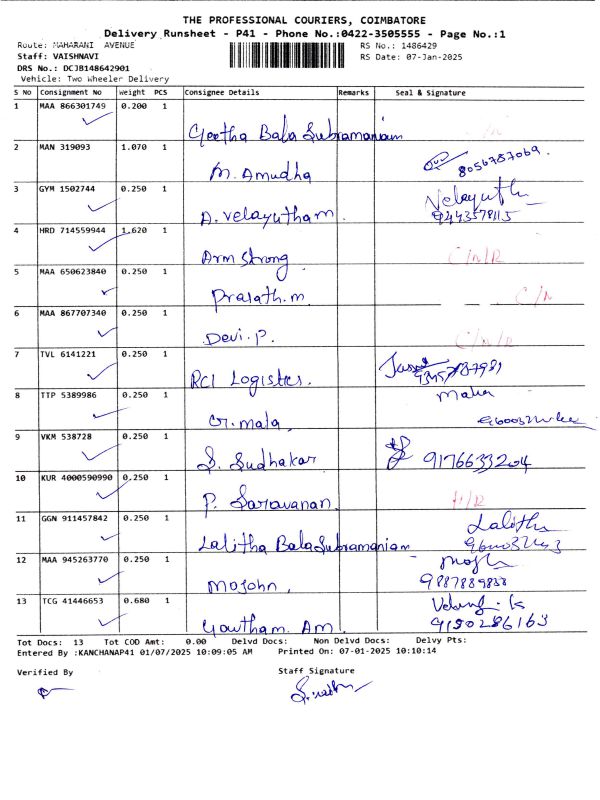 THE PROFESSIONAL COURIERS, COIMBATORE
Delivery Runsheet - P41 - Phone No.:0422-3505555 - Page No.:1
Route: MAHARANI AVENUE
RS No.: 1486429
Staff: VAISHNAVI
RS Date: 07-Jan-2025
DRS No.: DCJB148642901
Vehicle: Two Wheeler Delivery
S No Consignment No Weight PCS Consignee Details Remarks Seal & Signature
1 MAA 866301749 0.200 1
Geetha Bala Subramaniam
2 MAN 319093 1.070 1
M. Amudha 8056787069.
3 GYM 1502744 0.250 1
A. Velayutham Velayuth
9443578115
4 HRD 714559944 1.620 1
Arm Strong C/N/R
5 MAA 650623840 0.250 1
Prasath.m. C/N
6 MAA 867707340 0.250 1
Devi.P. C/N/R
7 TVL 6141221 0.250 1
RCI Logistics.
8 TTP 5389986 0.250 1
Maha
G. mala
9 VKM 538728 0.250 1
S. Sudhakar 9176633204
10 KUR 4000590990 0.250 1
P. Saravanan.
11 GGN 911457842 0.250 1
Lalitha
Lalitha BalaSubramaniam
12 MAA 945263770 0.250 1
Mojohn, 9887889838
13 TCG 41446653 0.680 1
Gowtham. AM. 9150286163
Tot Docs: 13 Tot COD Amt: 0.00 Delvd Docs: Non Delvd Docs: Delvy Pts:
Entered By :KANCHANAP41 01/07/2025 10:09:05 AM Printed On: 07-01-2025 10:10:14
Verified By Staff Signature